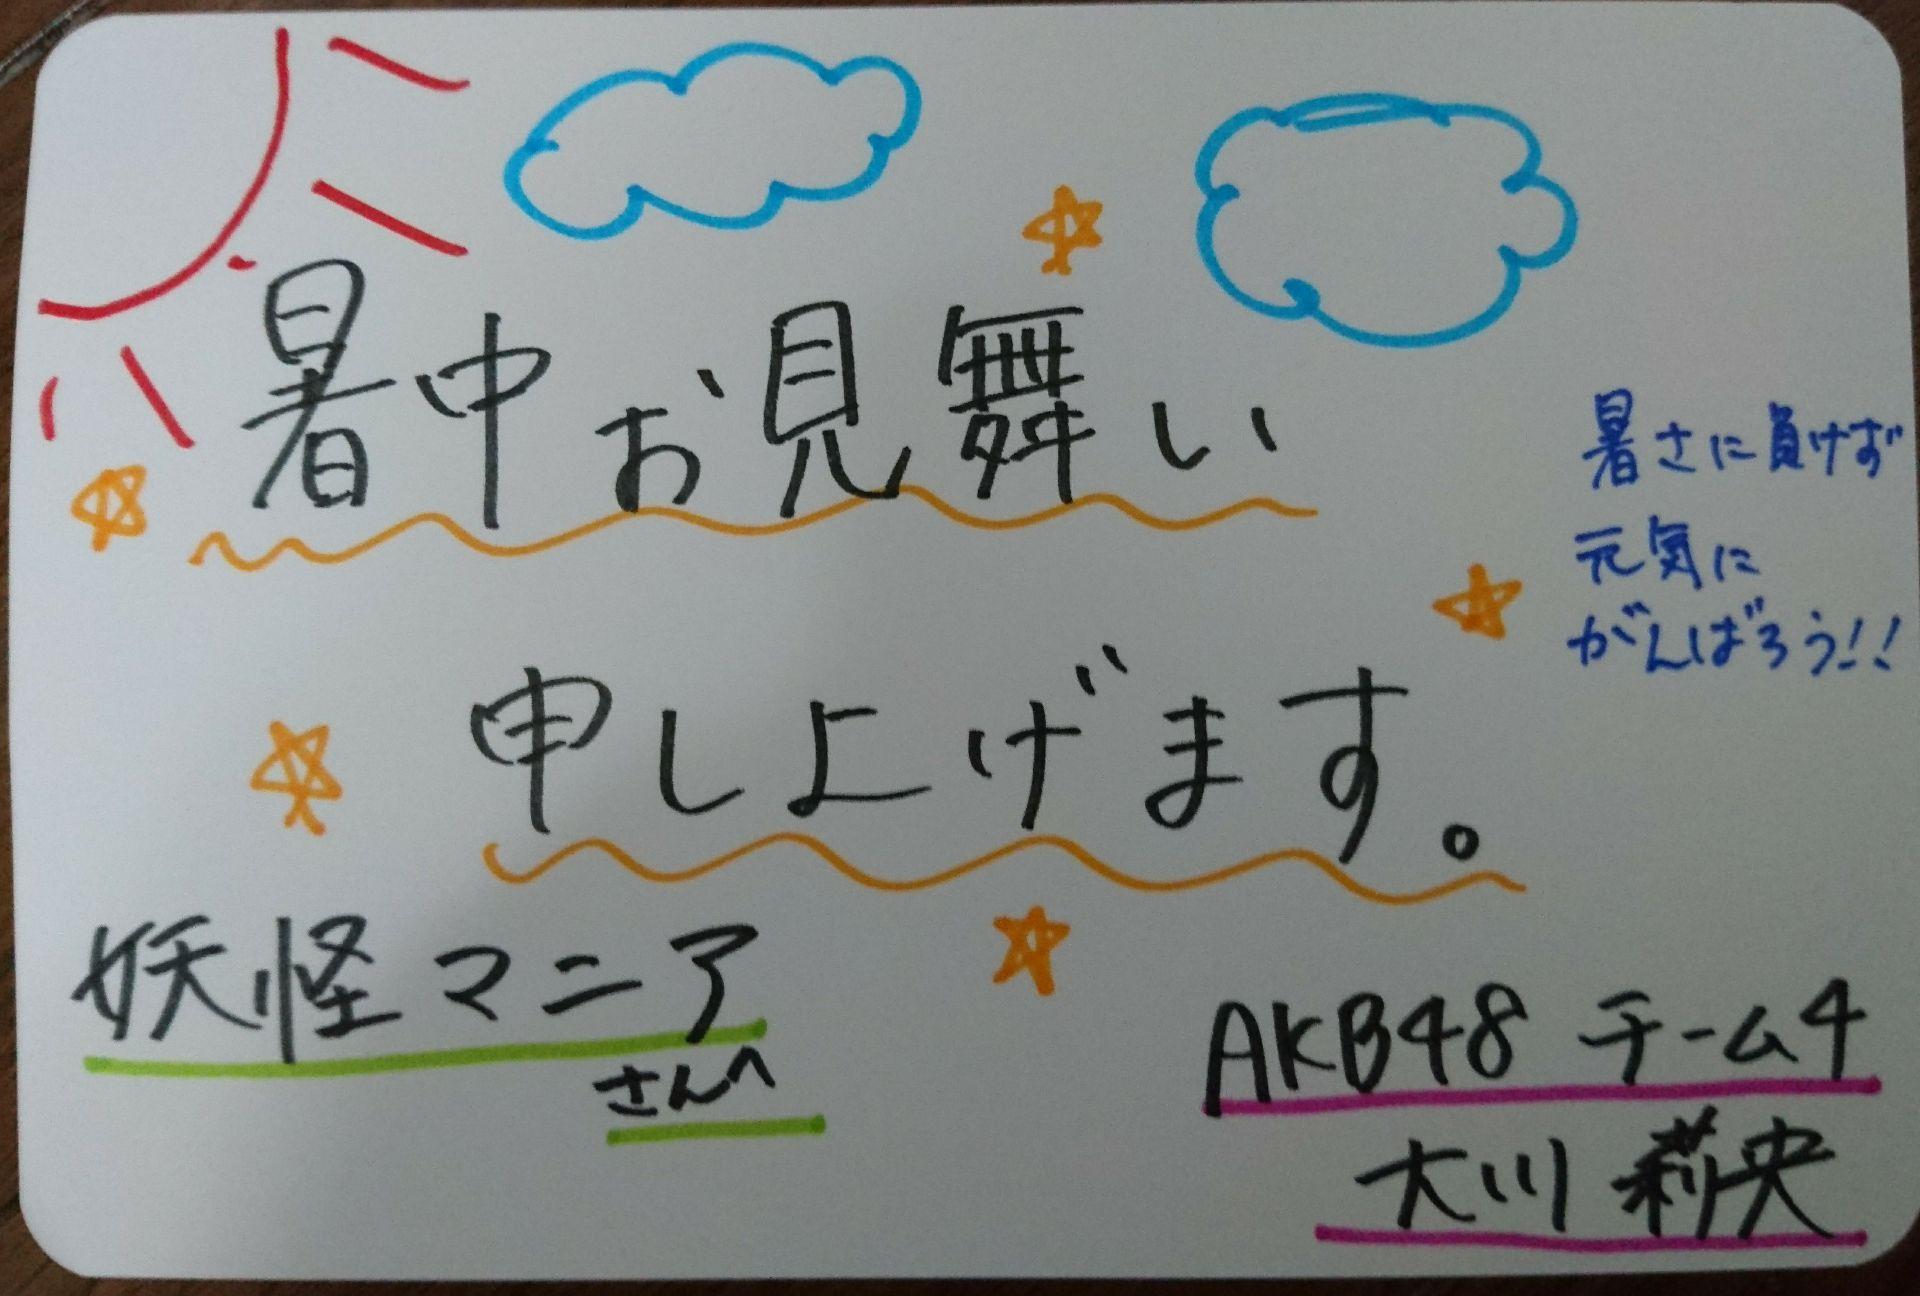 暑中お見舞い
申し上げます。
暑さに負けず
元気に
がんばろう!!
妖怪マニア
さんへ
AKB48 チーム4
大川 莉央